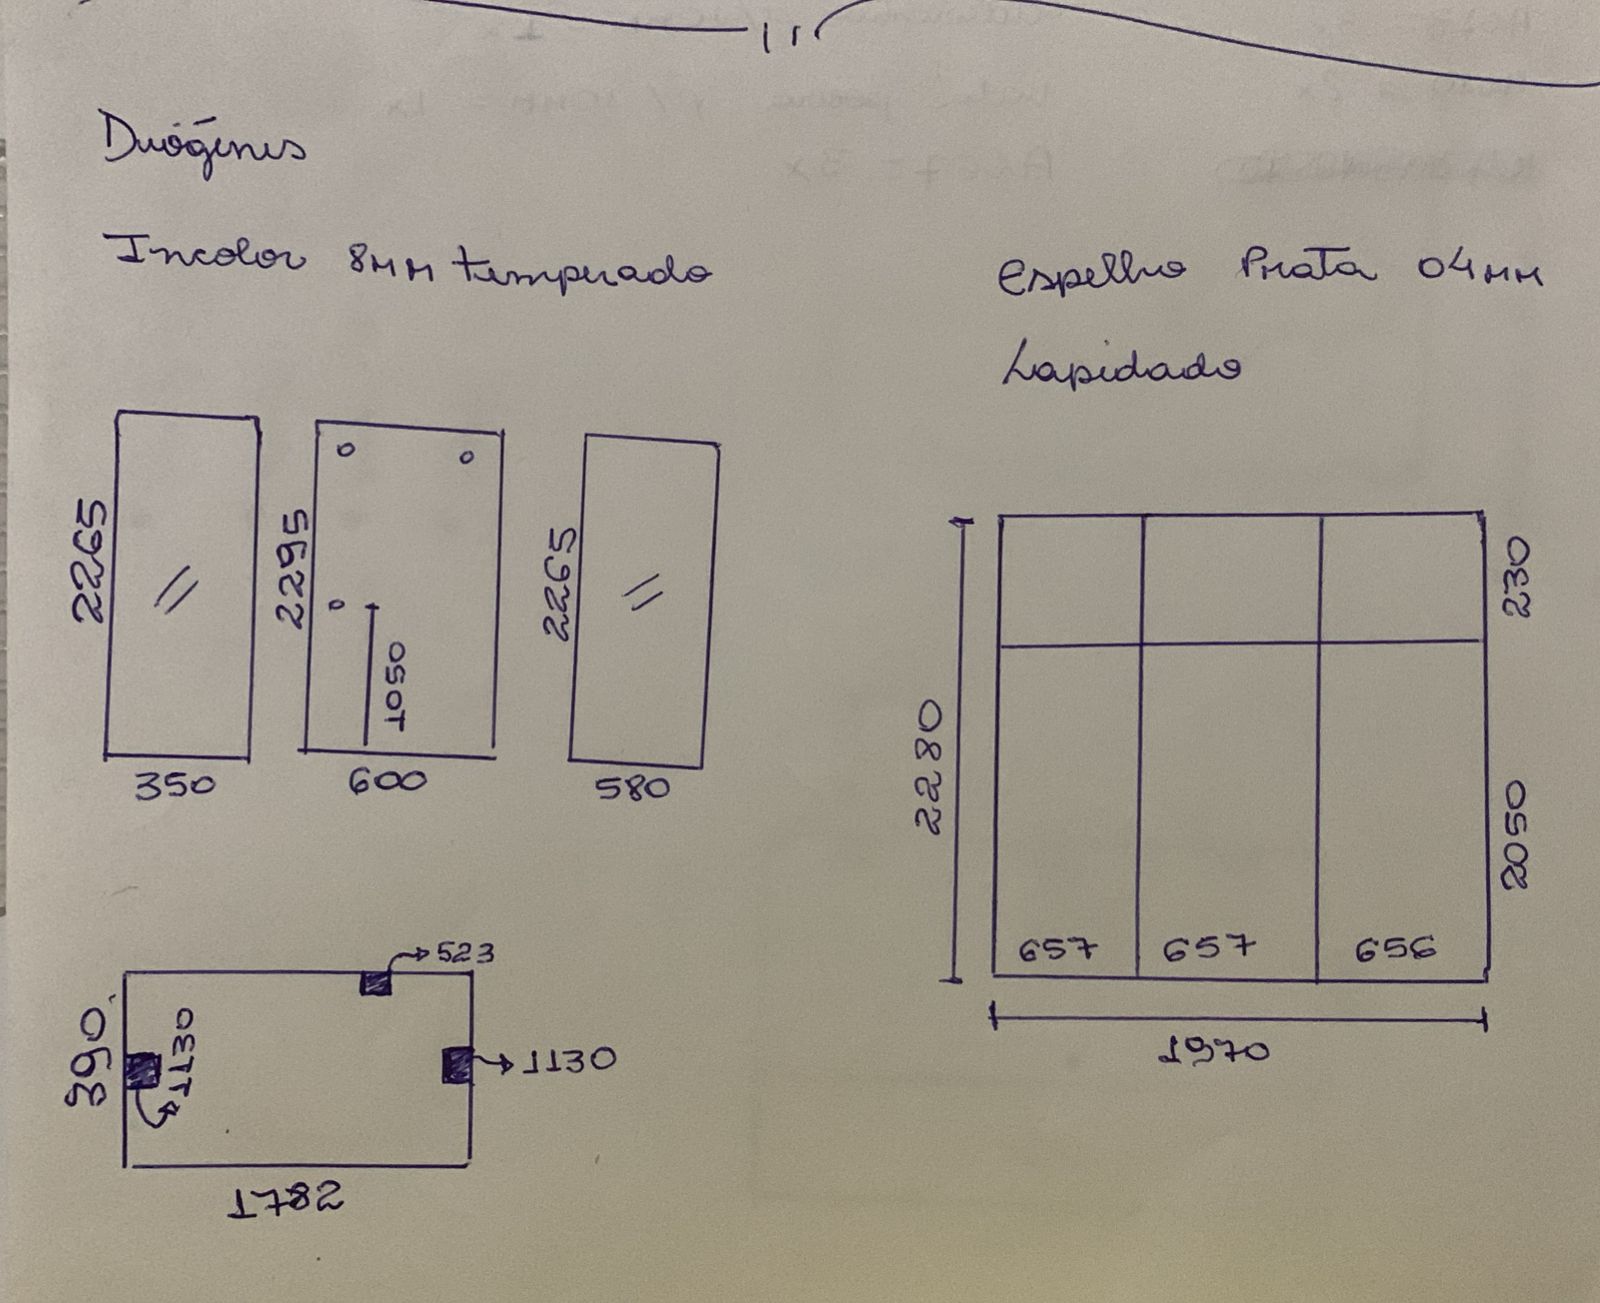 Diógenes
Incolor 8mm temperado
2265
350
2295
1050
600
2265
580
523
390
1130
1130
1782
Espelho Prata 04mm
Lapidado
2280
230
2050
657 657 656
1970